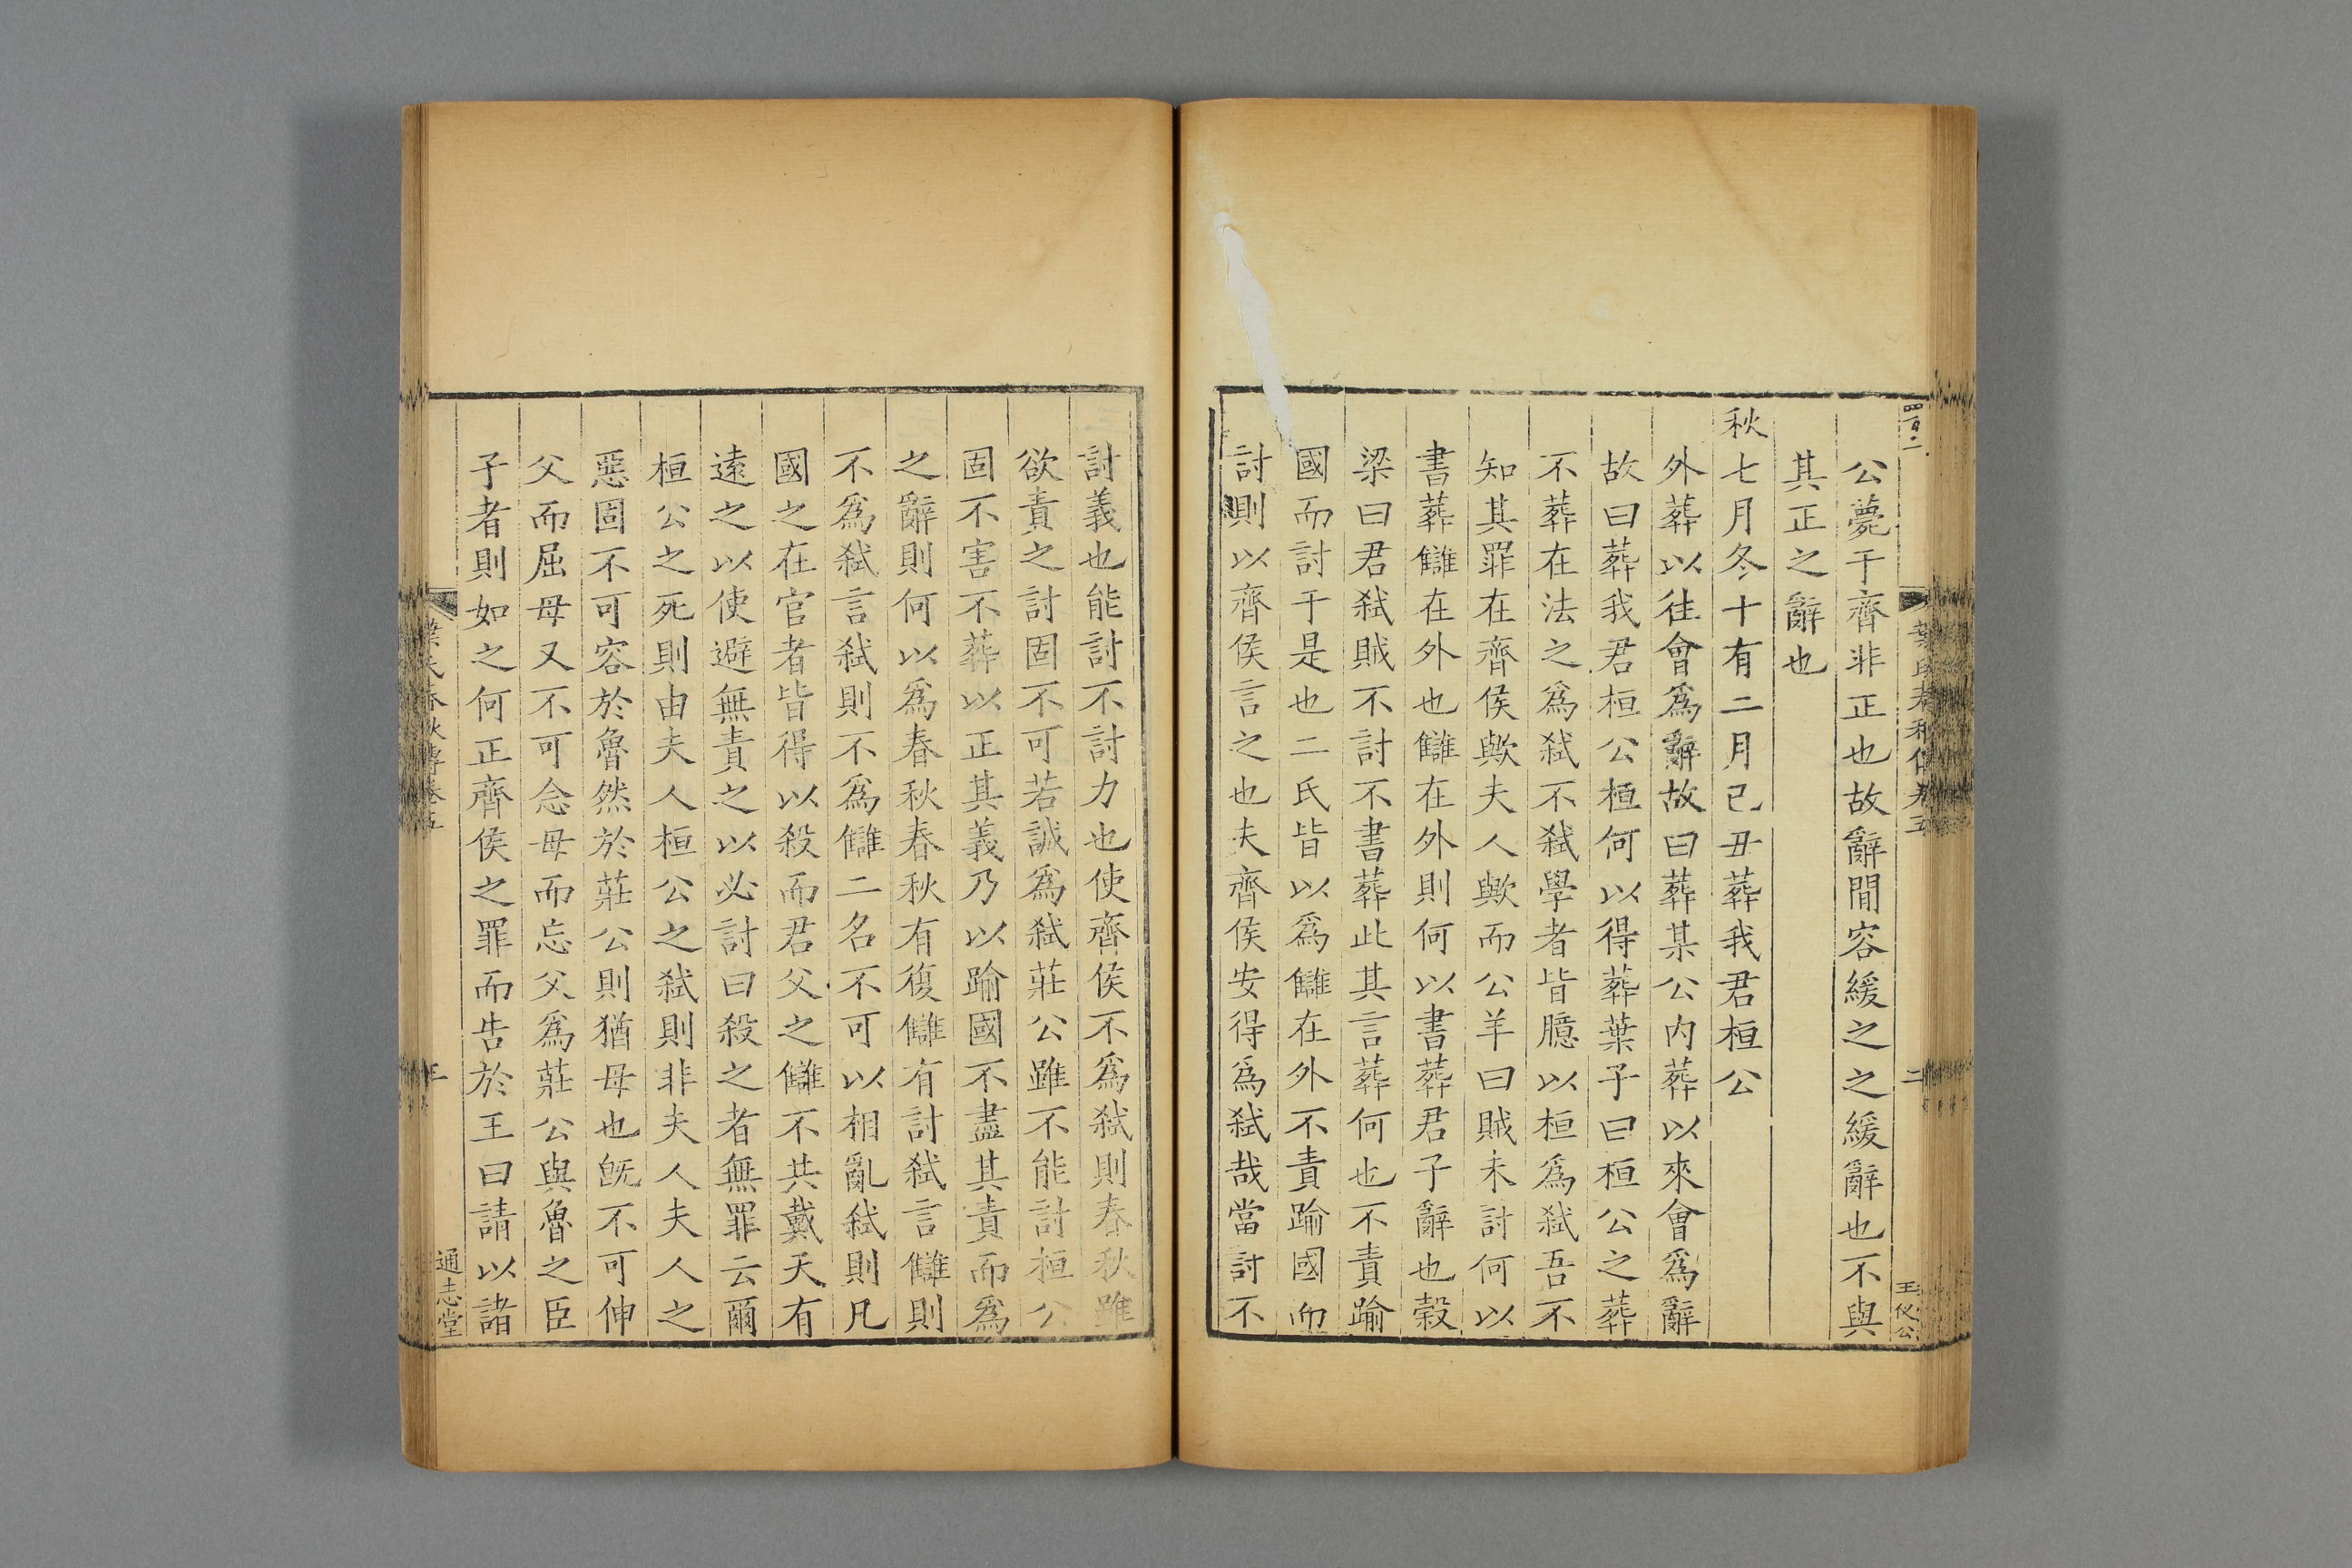 四百二
葉氏春秋傳卷五
二
公薨于齊非正也故辭間容緩之之緩辭也不與
其正之辭也
秋七月冬十有二月己丑葬我君桓公
外葬以往會爲辭故曰葬某公内葬以來會爲辭
故曰葬我君桓公桓何以得葬葉子曰桓公之葬
不葬在法之爲弑不弑學者皆臆以桓爲弑吾不
知其罪在齊侯歟夫人歟而公羊曰賊未討何以
書葬讎在外也讎在外則何以書葬君子辭也榖
梁曰君弑賊不討不書葬此其言葬何也不責踰
國而討于是也二氏皆以爲讎在外不責踰國而
討則以齊侯言之也夫齊侯安得爲弑哉當討不
討義也能討不討力也使齊侯不爲弑則春秋雖
欲責之討固不可若誠爲弑莊公雖不能討桓公
固不害不葬以正其義乃以踰國不盡其責而爲
之辭則何以爲春秋春秋有復讎有討弑言讎則
不爲弑言弑則不爲讎二名不可以相亂弑則凡
國之在官者皆得以殺而君父之讎不共戴天有
遠之以使避無責之以必討曰殺之者無罪云爾
桓公之死則由夫人桓公之弑則非夫人夫人之
惡固不可容於魯然於莊公則猶母也旣不可伸
父而屈母又不可念母而忘父爲莊公與魯之臣
子者則如之何正齊侯之罪而告於王曰請以諸
葉氏春秋傳卷五
通志堂